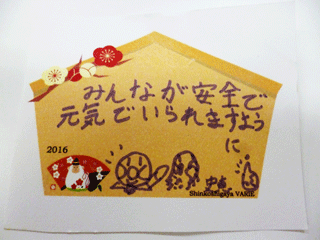 みんなが安全で
元気でいられますよう
に
2016
Shinkoiwa VARIE